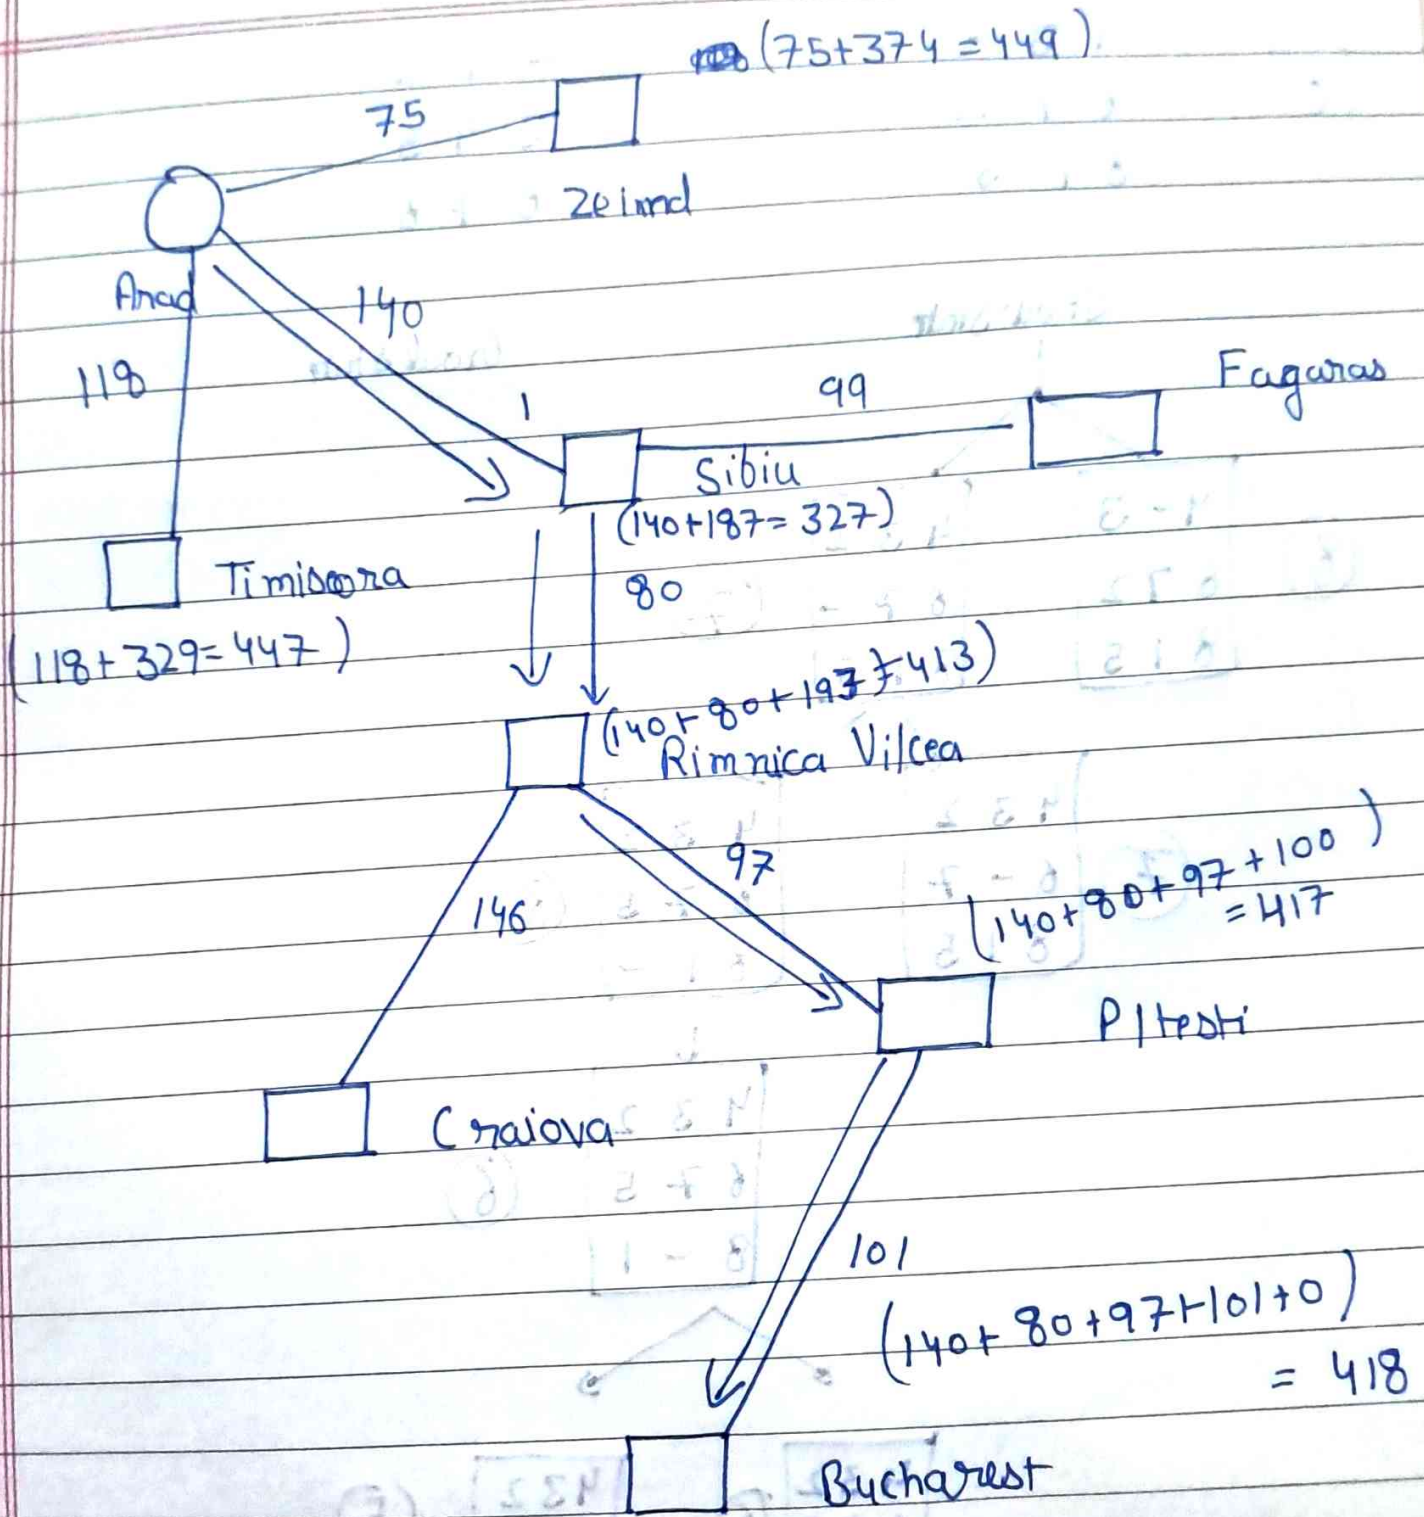 (75+374=449)
75
Zeimd
Arad
140
118
1
99
Fagaras
Sibiu
(140+187=327)
80
Timisoora
(118+329=447)
(140+80+193=413)
Rimnica Vilcea
97
146
(140+80+97+100)
=417
PItesti
Craiova
101
(140+80+97+101+0)
= 418
Bucharest